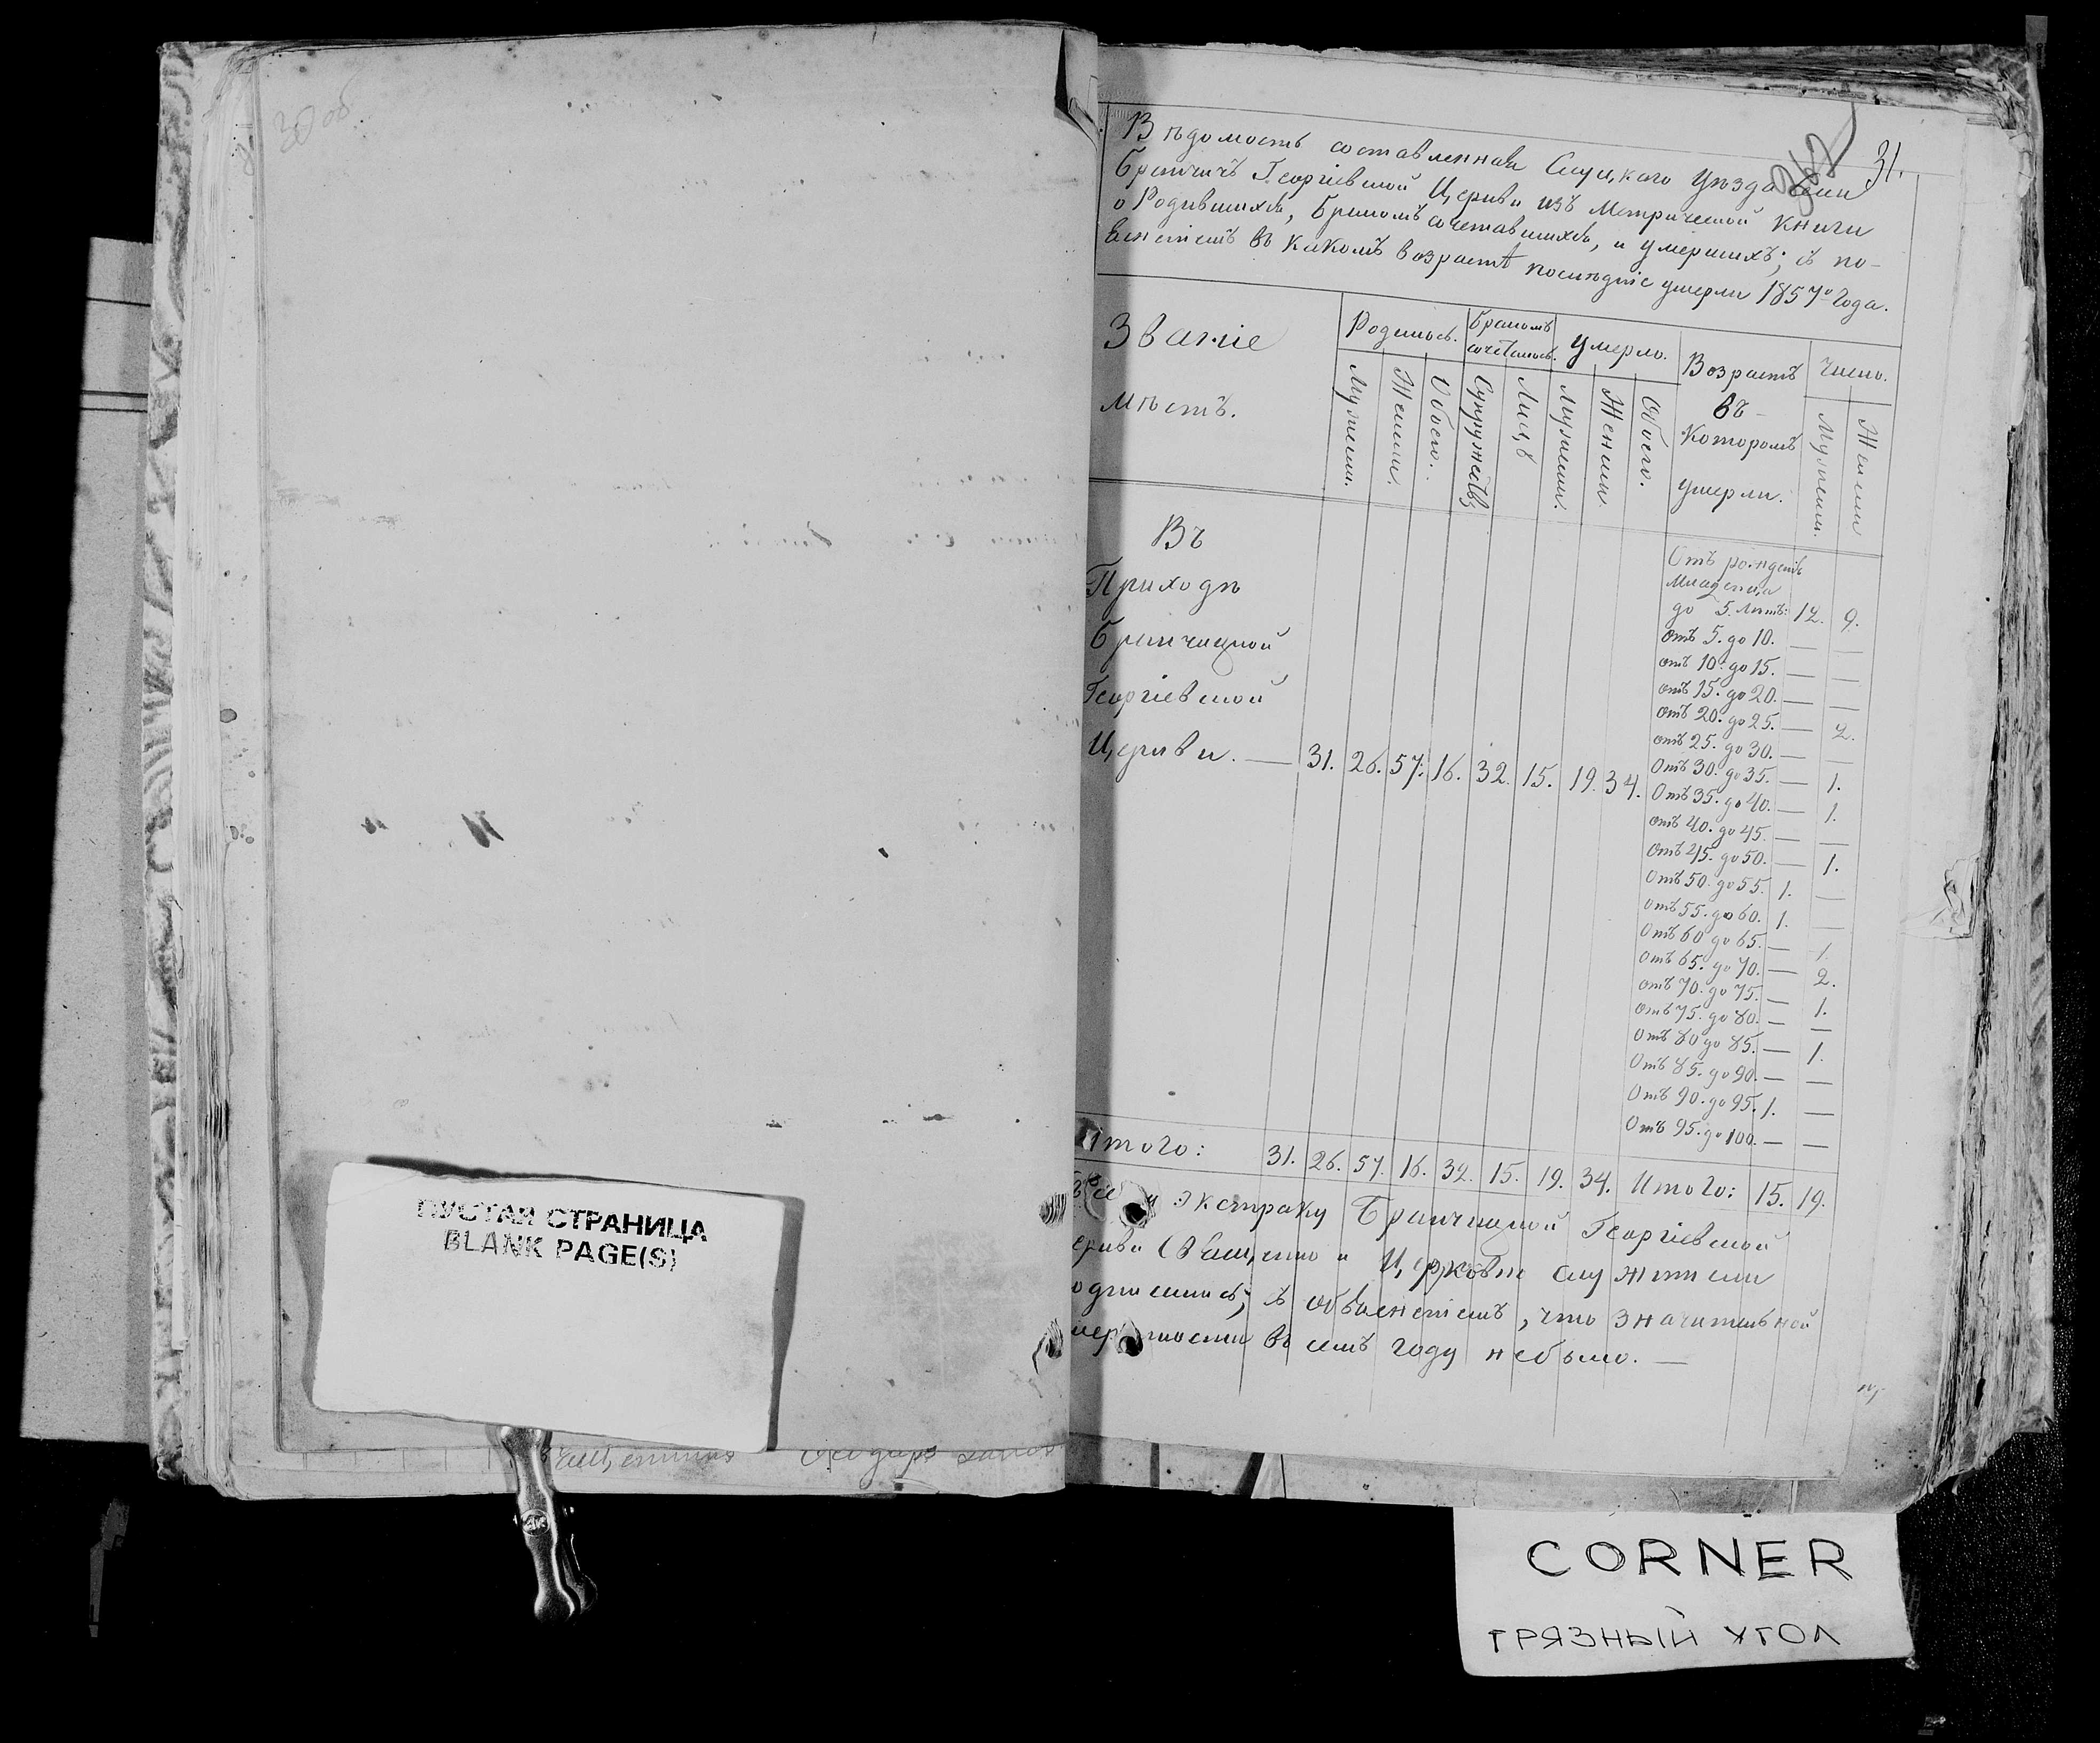 30 об
ПУСТАЯ СТРАНИЦА
BLANK PAGE(S)
31.
Вѣдомость составленная Слуцкаго Уѣзда
Брянчичъ Георгіевской Церкви изъ Метрической Книги
о Родившихся, Бракомъ сочетавшихся, и умершихъ; съ по-
ясненіемъ въ какомъ возрастѣ послѣдніе умерли 1857го Года.
Званіе
мѣстъ.
Родилось.
Бракомъ
сочеталось.
Умерло.
Возрастъ
въ
которомъ
умерли.
Число.
Мужеск.
Женск.
Обоего.
Супружествъ
Лицъ
Мужеск.
Женск.
Обоего.
Мужеск.
Женск
Въ
Приходѣ
Георгіевской
Церкви. — 31. 26. 57. 16. 32. 15. 19. 34.
Отъ рожденія
Младенца
до 5. Лѣтъ: 12. 9.
отъ 5. до 10. — —
отъ 10. до 15. — —
отъ 15. до 20. — —
отъ 20. до 25. — 2.
отъ 25. до 30. — —
Отъ 30. до 35. — 1.
Отъ 35. до 40. — 1.
отъ 40. до 45. — —
Отъ 45. до 50. — 1.
Отъ 50. до 55. 1. —
Отъ 55. до 60. 1. —
Отъ 60 до 65. — 1.
Отъ 65. до 70. — 2.
отъ 70. до 75. — 1.
Отъ 75. до 80. — —
Отъ 80 до 85. — 1.
Отъ 85. до 90. — —
Отъ 90. до 95. 1. —
Отъ 95. до 100. — —
Итого: 31. 26. 57. 16. 32. 15. 19. 34. Итого: 15. 19.
экстракту Георгіевской
Священно и Церковно служители
съ объясненіемъ, что значительной
въ семъ году небыло. —
CORNER
ГРЯЗНЫЙ УГОЛ